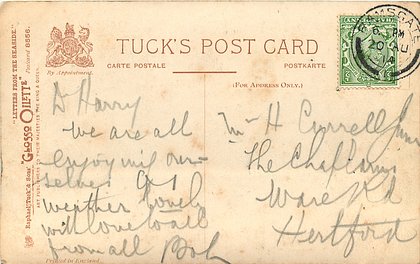 TUCK'S POST CARD
CARTE POSTALE
POSTKARTE
By Appointment.
(FOR ADDRESS ONLY.)
"LETTERS FROM THE SEASIDE." Postcard 8656.
Raphael Tuck & Sons' "GLOSSO OILETTE"
ART PUBLISHERS TO THEIR MAJESTIES THE KING & QUEEN.
Printed in England.
RAMSGATE
6 PM
20 AU
14
D Harry
we are all
enjoying our-
selves
weather lovely
with love to all
from all Bob
Mr H Currell Junr
The Chaplains
Ware Rd
Hertford